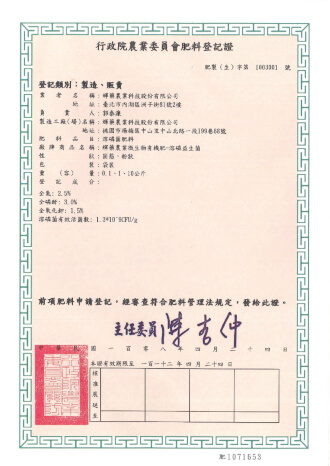 行政院農業委員會肥料登記證
肥製(生)字第 1003001 號
登記類別：製造、販賣
業者名稱：輝藥農業科技股份有限公司
地址：臺北市內湖區洲子街81號2樓
負責人：郭泰濂
製造工廠(場)名稱：輝藥農業科技股份有限公司
地址：桃園市楊梅區中山里中山北路一段199巷68號
肥料品目：溶磷菌肥料
廠牌商品名稱：輝藥農業微生物有機肥-溶磷益生菌
性狀：固態，粉狀
包裝：袋裝
量(容)量：0.1、1、10公斤
登記成分：
全氮：2.5%
全磷酐：3.0%
全氧化鉀：1.5%
溶磷菌有效活菌數：1.2*10^9CFU/g
前項肥料申請登記，經審查符合肥料管理法規定，發給此證。
主任委員 陳吉仲
中華民國一百零八年四月二十四日
本證有效期限至 一百一十二年四月二十四日
核准展延至
肥1071653